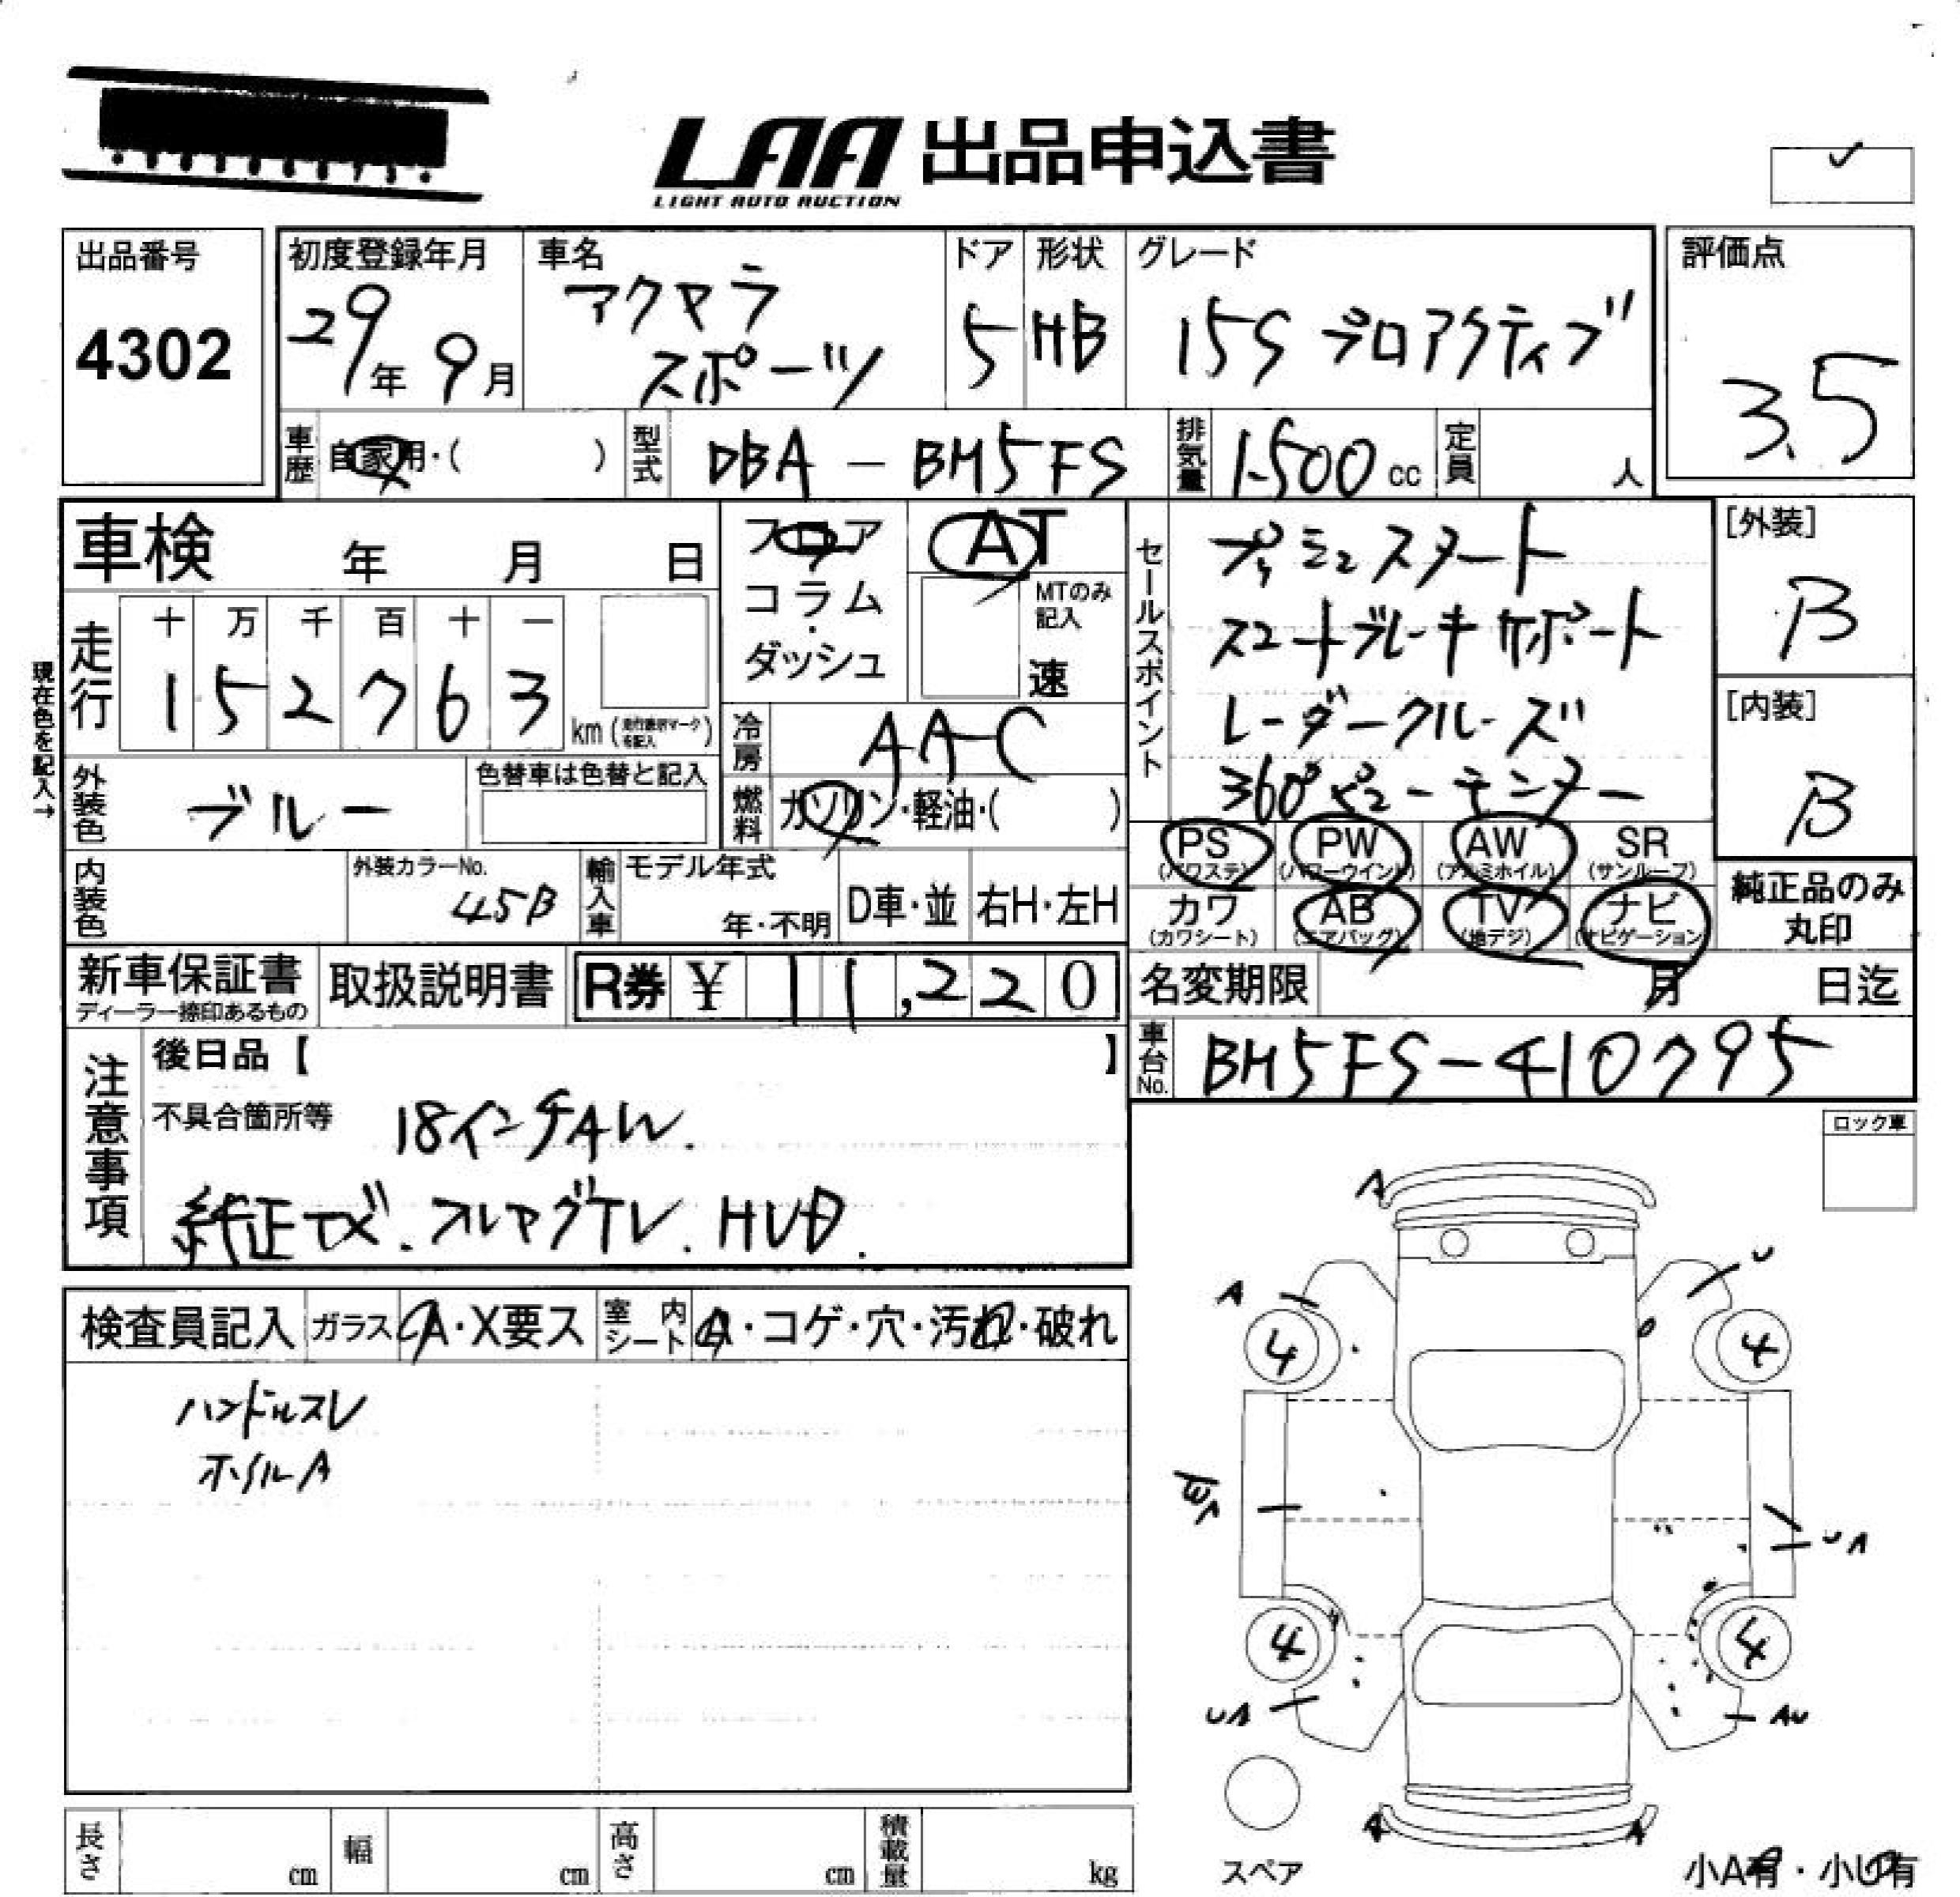 LAA 出品申込書
LIGHT AUTO AUCTION
出品番号
4302
初度登録年月
29年 9月
車名
アクセラ
スポーツ
ドア
5
形状
HB
グレード
15S プロアクティブ
評価点
3.5
車歴
自家用・( )
型式
DBA-BM5FS
排気量
1500 cc
定員
人
車検 年 月 日
フロア
コラム・
ダッシュ
AT
MTのみ
記入
速
セールスポイント
プッシュスタート
スマートブレーキサポート
レーダークルーズ
360°ビューモニター
[外装]
B
[内装]
B
現在色を記入→
走行
十 万 千 百 十 一
1 5 2 7 6 3
km (走行表示マークを記入)
冷房
AAC
外装色
ブルー
色替車は色替と記入
燃料
ガソリン・軽油・( )
PS
(パワステ)
PW
(パワーウインド)
AW
(アルミホイル)
SR
(サンルーフ)
内装色
外装カラーNo.
45B
輸入車
モデル年式
年・不明
D車・並
右H・左H
カワ
(カワシート)
AB
(エアバッグ)
TV
(地デジ)
ナビ
(ナビゲーション)
純正品のみ
丸印
新車保証書
ディーラー捺印あるもの
取扱説明書
R券 ¥ 11,220
名変期限 月 日迄
車台No.
BM5FS-410795
注意事項
後日品【 】
不具合箇所等 18インチAW.
純正ナビ. フルセグTV. HUD.
ロック車
検査員記入
ガラス
A・X要ス
室内
シート
A・コゲ・穴・汚れ・破れ
ハンドルスレ
ホイルA
A
A
U
4
4
UA
4
4
UA
AU
A
A
スペア
小A有・小U有
長さ cm
幅 cm
高さ cm
積載量 kg